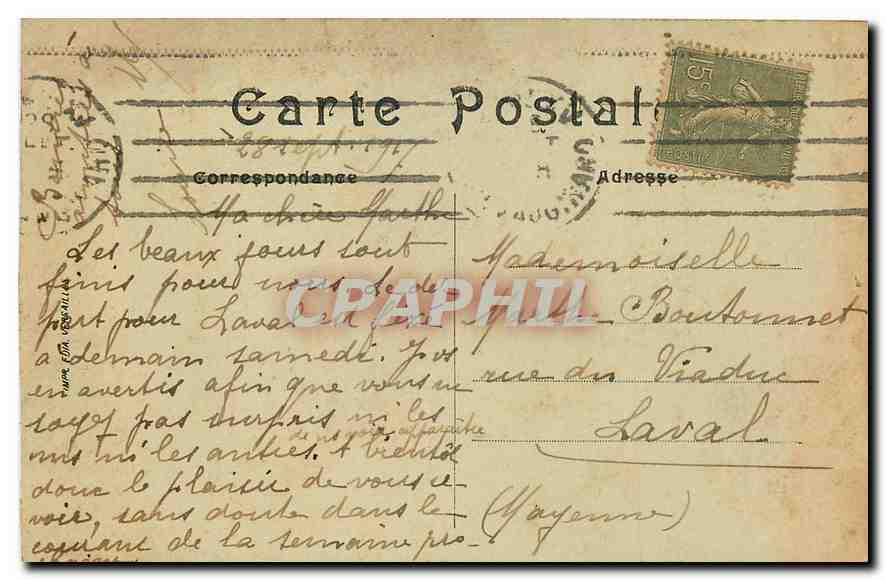 Carte Postale
15c
28 sept. 1917
Correspondance
Adresse
Ma chère Marthe
Les beaux jours sont
finis pour nous de dé
part pour Laval est fixé
a demain samedi. Je vs
en avertis afin que vous ne
soyez pas surpris ni les
uns ni les autres. de ns voir apparaître A bientôt
donc le plaisir de vous re
voir, sans doute dans le
courant de la semaine pro-
Mademoiselle
Boutonnet
rue du Viaduc
Laval
(Mayenne)
IMPR. EDIA. VERSAILLES
CPAPHIL